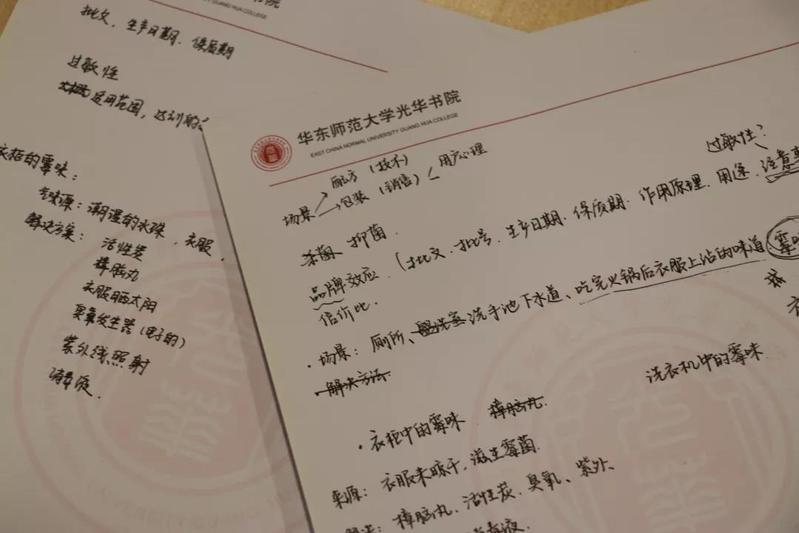 书院
GUANG HUA COLLEGE
批文、生产日期、保质期
过敏性
适用范围,达到的
衣柜的霉味:
气味源:潮湿的水珠、衣服、
解决方案:活性炭
樟脑丸
衣服晒太阳
臭氧发生器(电子的)
紫外线照射
消毒液.
华东师范大学光华书院
EAST CHINA NORMAL UNIVERSITY GUANG HUA COLLEGE
配方(技术)
场景
包装(销售)
用户心理
过敏性?
杀菌 抑菌.
品牌效应 (批文、批号、生产日期、保质期、作用原理、用途、注意事
信价比.
·场景:厕所、洗手池下水道、吃完火锅后衣服上沾的味道 霉味
·解决方法
洗衣机中的霉味
·衣柜中的霉味 樟脑丸
来源:衣服未晾干,滋生霉菌.
樟脑丸、活性炭、臭氧、紫外、